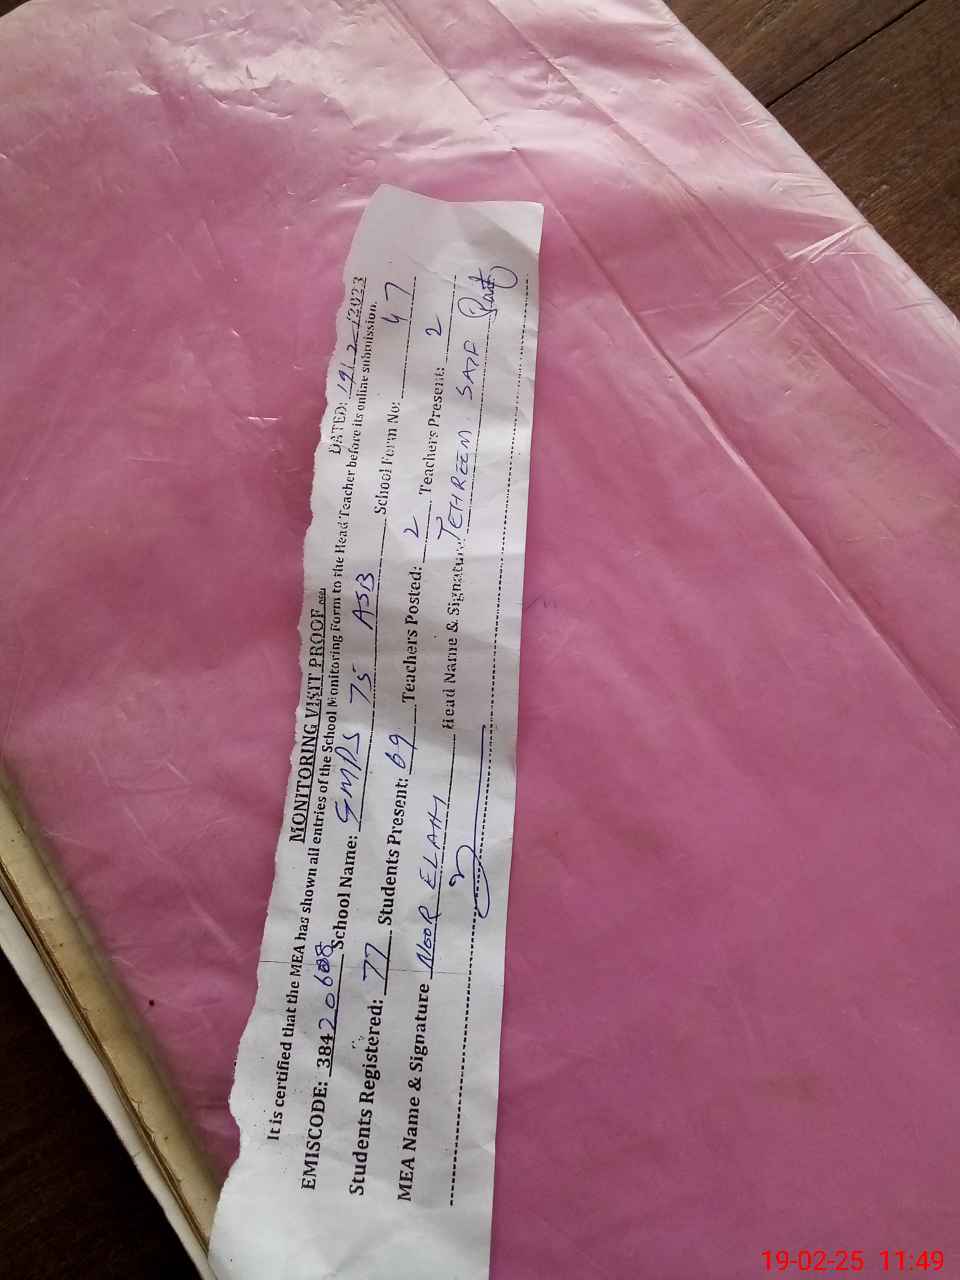 MONITORING VISIT PROOF
DATED: 19/2/2023
It is certified that the MEA has shown all entries of the School Monitoring Form to the Head Teacher before its online submission.
EMISCODE: 38420608 School Name: GMPS 75 ASB School Form No: 47
Students Registered: 77 Students Present: 69 Teachers Posted: 2 Teachers Present: 2
MEA Name & Signature NOOR ELAHI Head Name & Signature: TEHREEM. SAIF
19-02-25 11:49